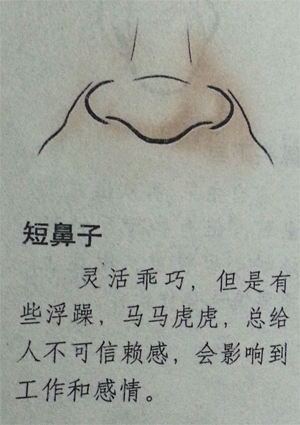 短鼻子
灵活乖巧，但是有
些浮躁，马马虎虎，总给
人不可信赖感，会影响到
工作和感情。